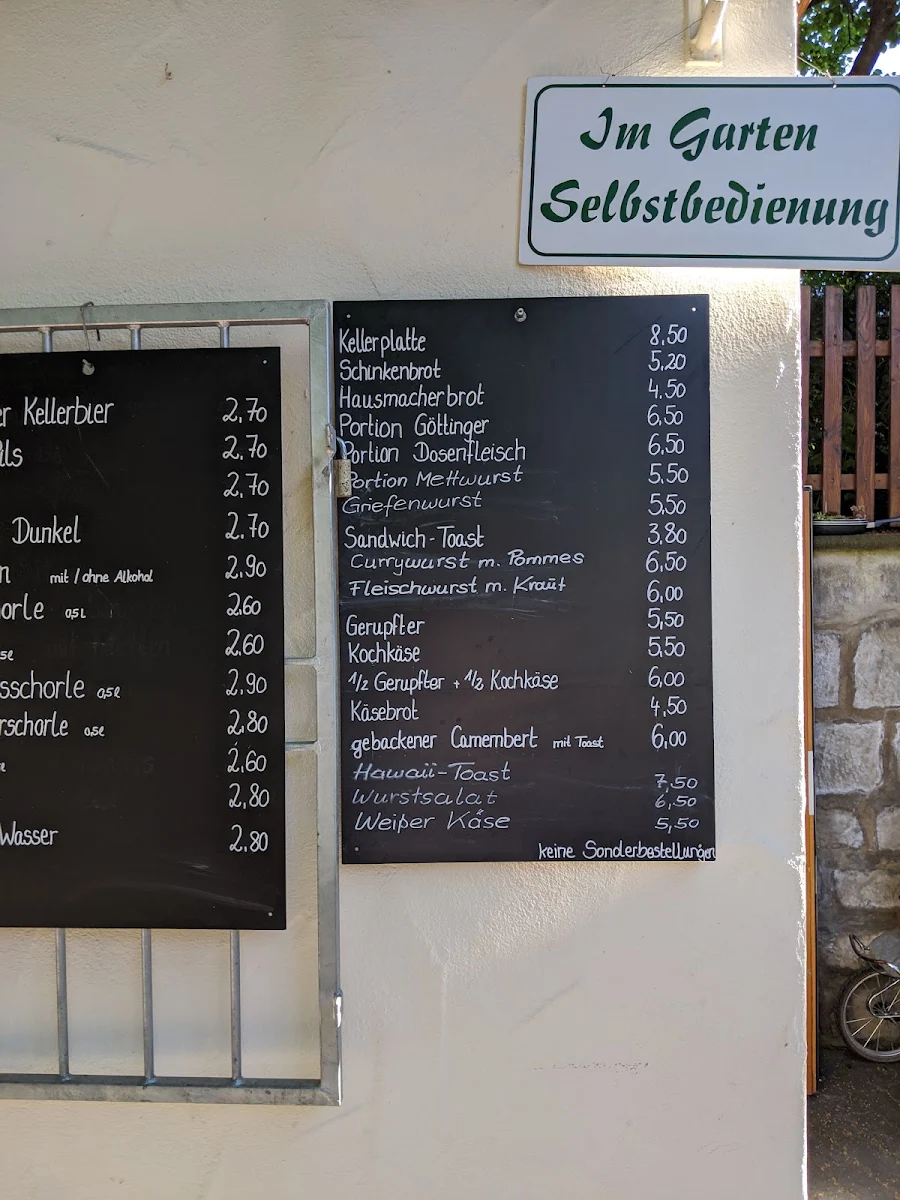 Im Garten
Selbstbedienung
Kellerbier 2,70
2,70
2,70
Dunkel 2.70
mit / ohne Alkohol 2,90
0,5 L 2,60
2,60
0,5 l 2,90
0,5 l 2,80
2,60
2,80
Wasser 2,80
Kellerplatte 8,50
Schinkenbrot 5,20
Hausmacherbrot 4.50
Portion Göttinger 6,50
Portion Dosenfleisch 6,50
Portion Mettwurst 5,50
Griefenwurst 5,50
Sandwich-Toast 3,80
Currywurst m. Pommes 6,50
Fleischwurst m. Kraut 6,00
Gerupfter 5,50
Kochkäse 5,50
1/2 Gerupfter + 1/2 Kochkäse 6,00
Käsebrot 4,50
gebackener Camembert mit Toast 6,00
Hawaii-Toast 7,50
Wurstsalat 6,50
Weißer Käse 5,50
keine Sonderbestellungen